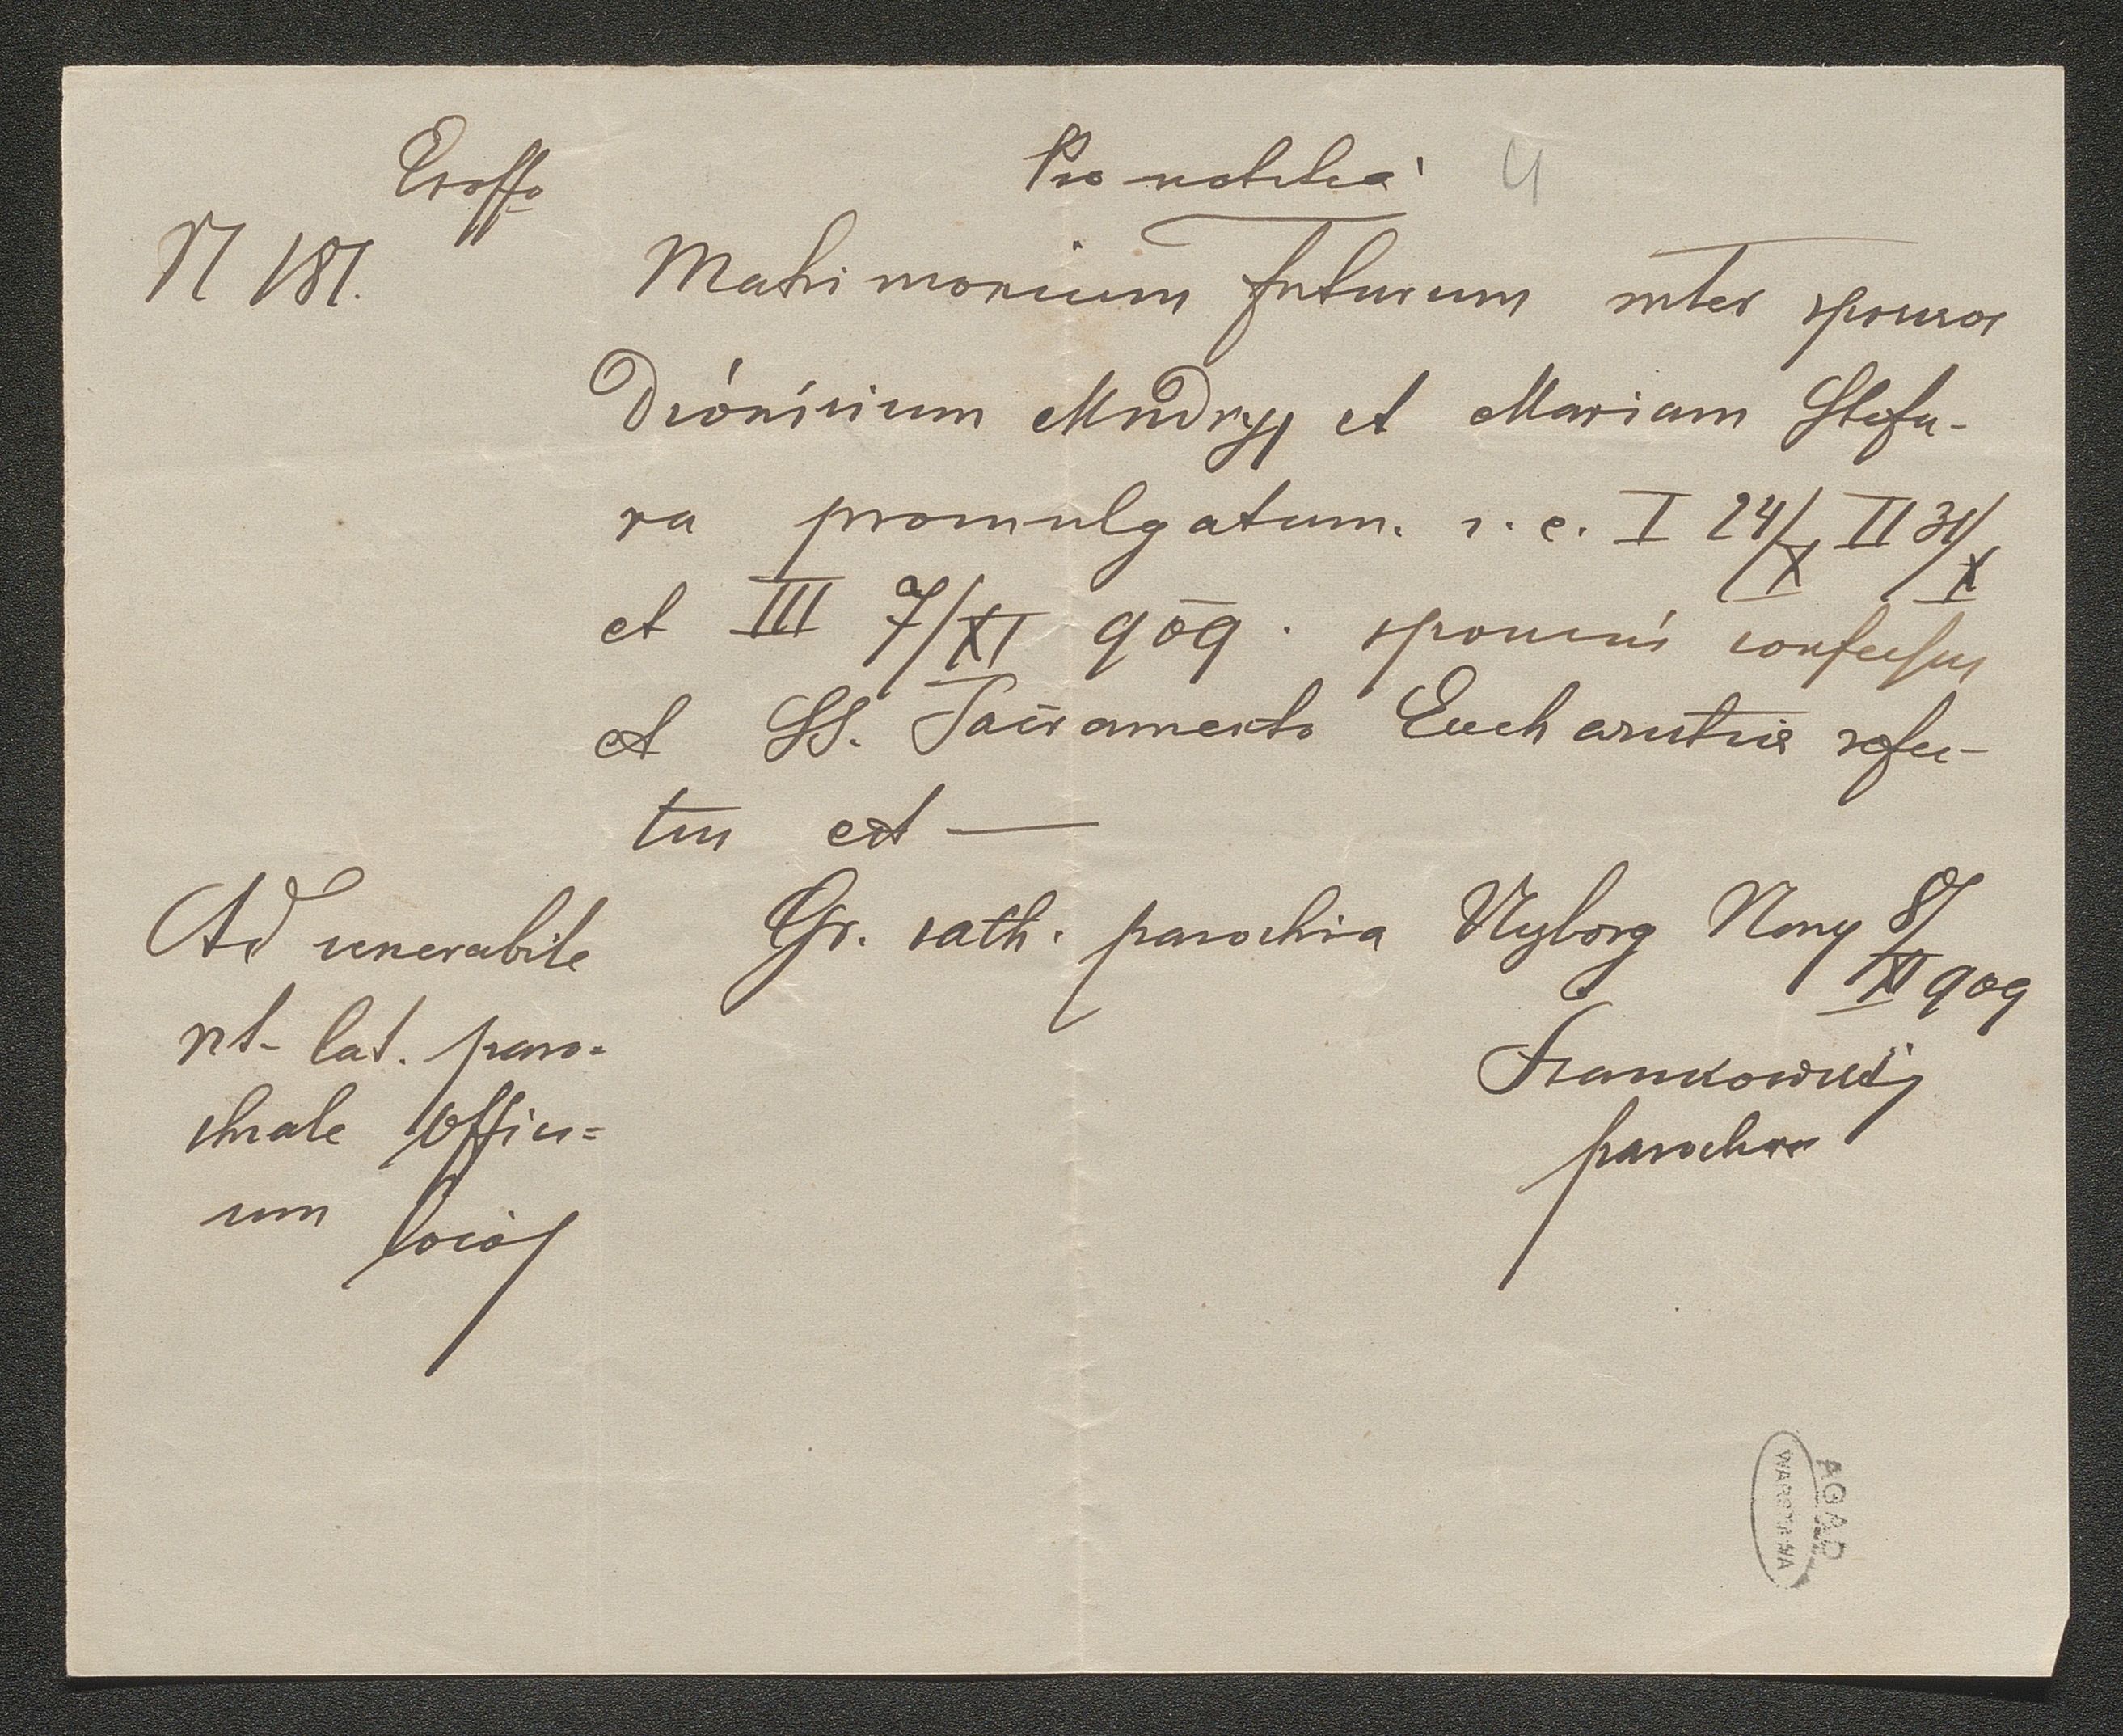 Exoffo
Pro notitiá 4
N 181.
Matrimonium futurum inter sponsos
Dionisium Mudryj et Mariam Stefu-
ra promulgatum. i. e. I 24/X II 31/X
et III 7/XI 909. sponsus confessus
et SS. Sacramento Eucharistiae refec-
tus est —
Gr. cath. parochia Nowy 8/XI 909
Ad venerabile
rit. lat. paro=
chiale Offici=
um loco
parochus
AGAD
WARSZAWA